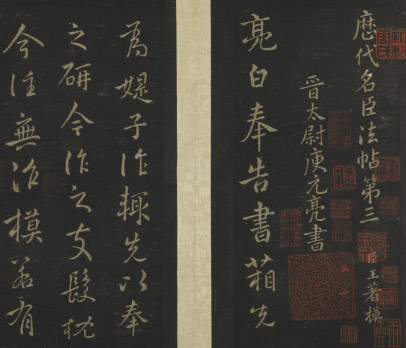 歷代名臣法帖第三 臣王著模
晉太尉庾元亮書
亮白奉告書箱先
為媞子作輒先以奉
之研今作之支髮枕
今往無作模若有